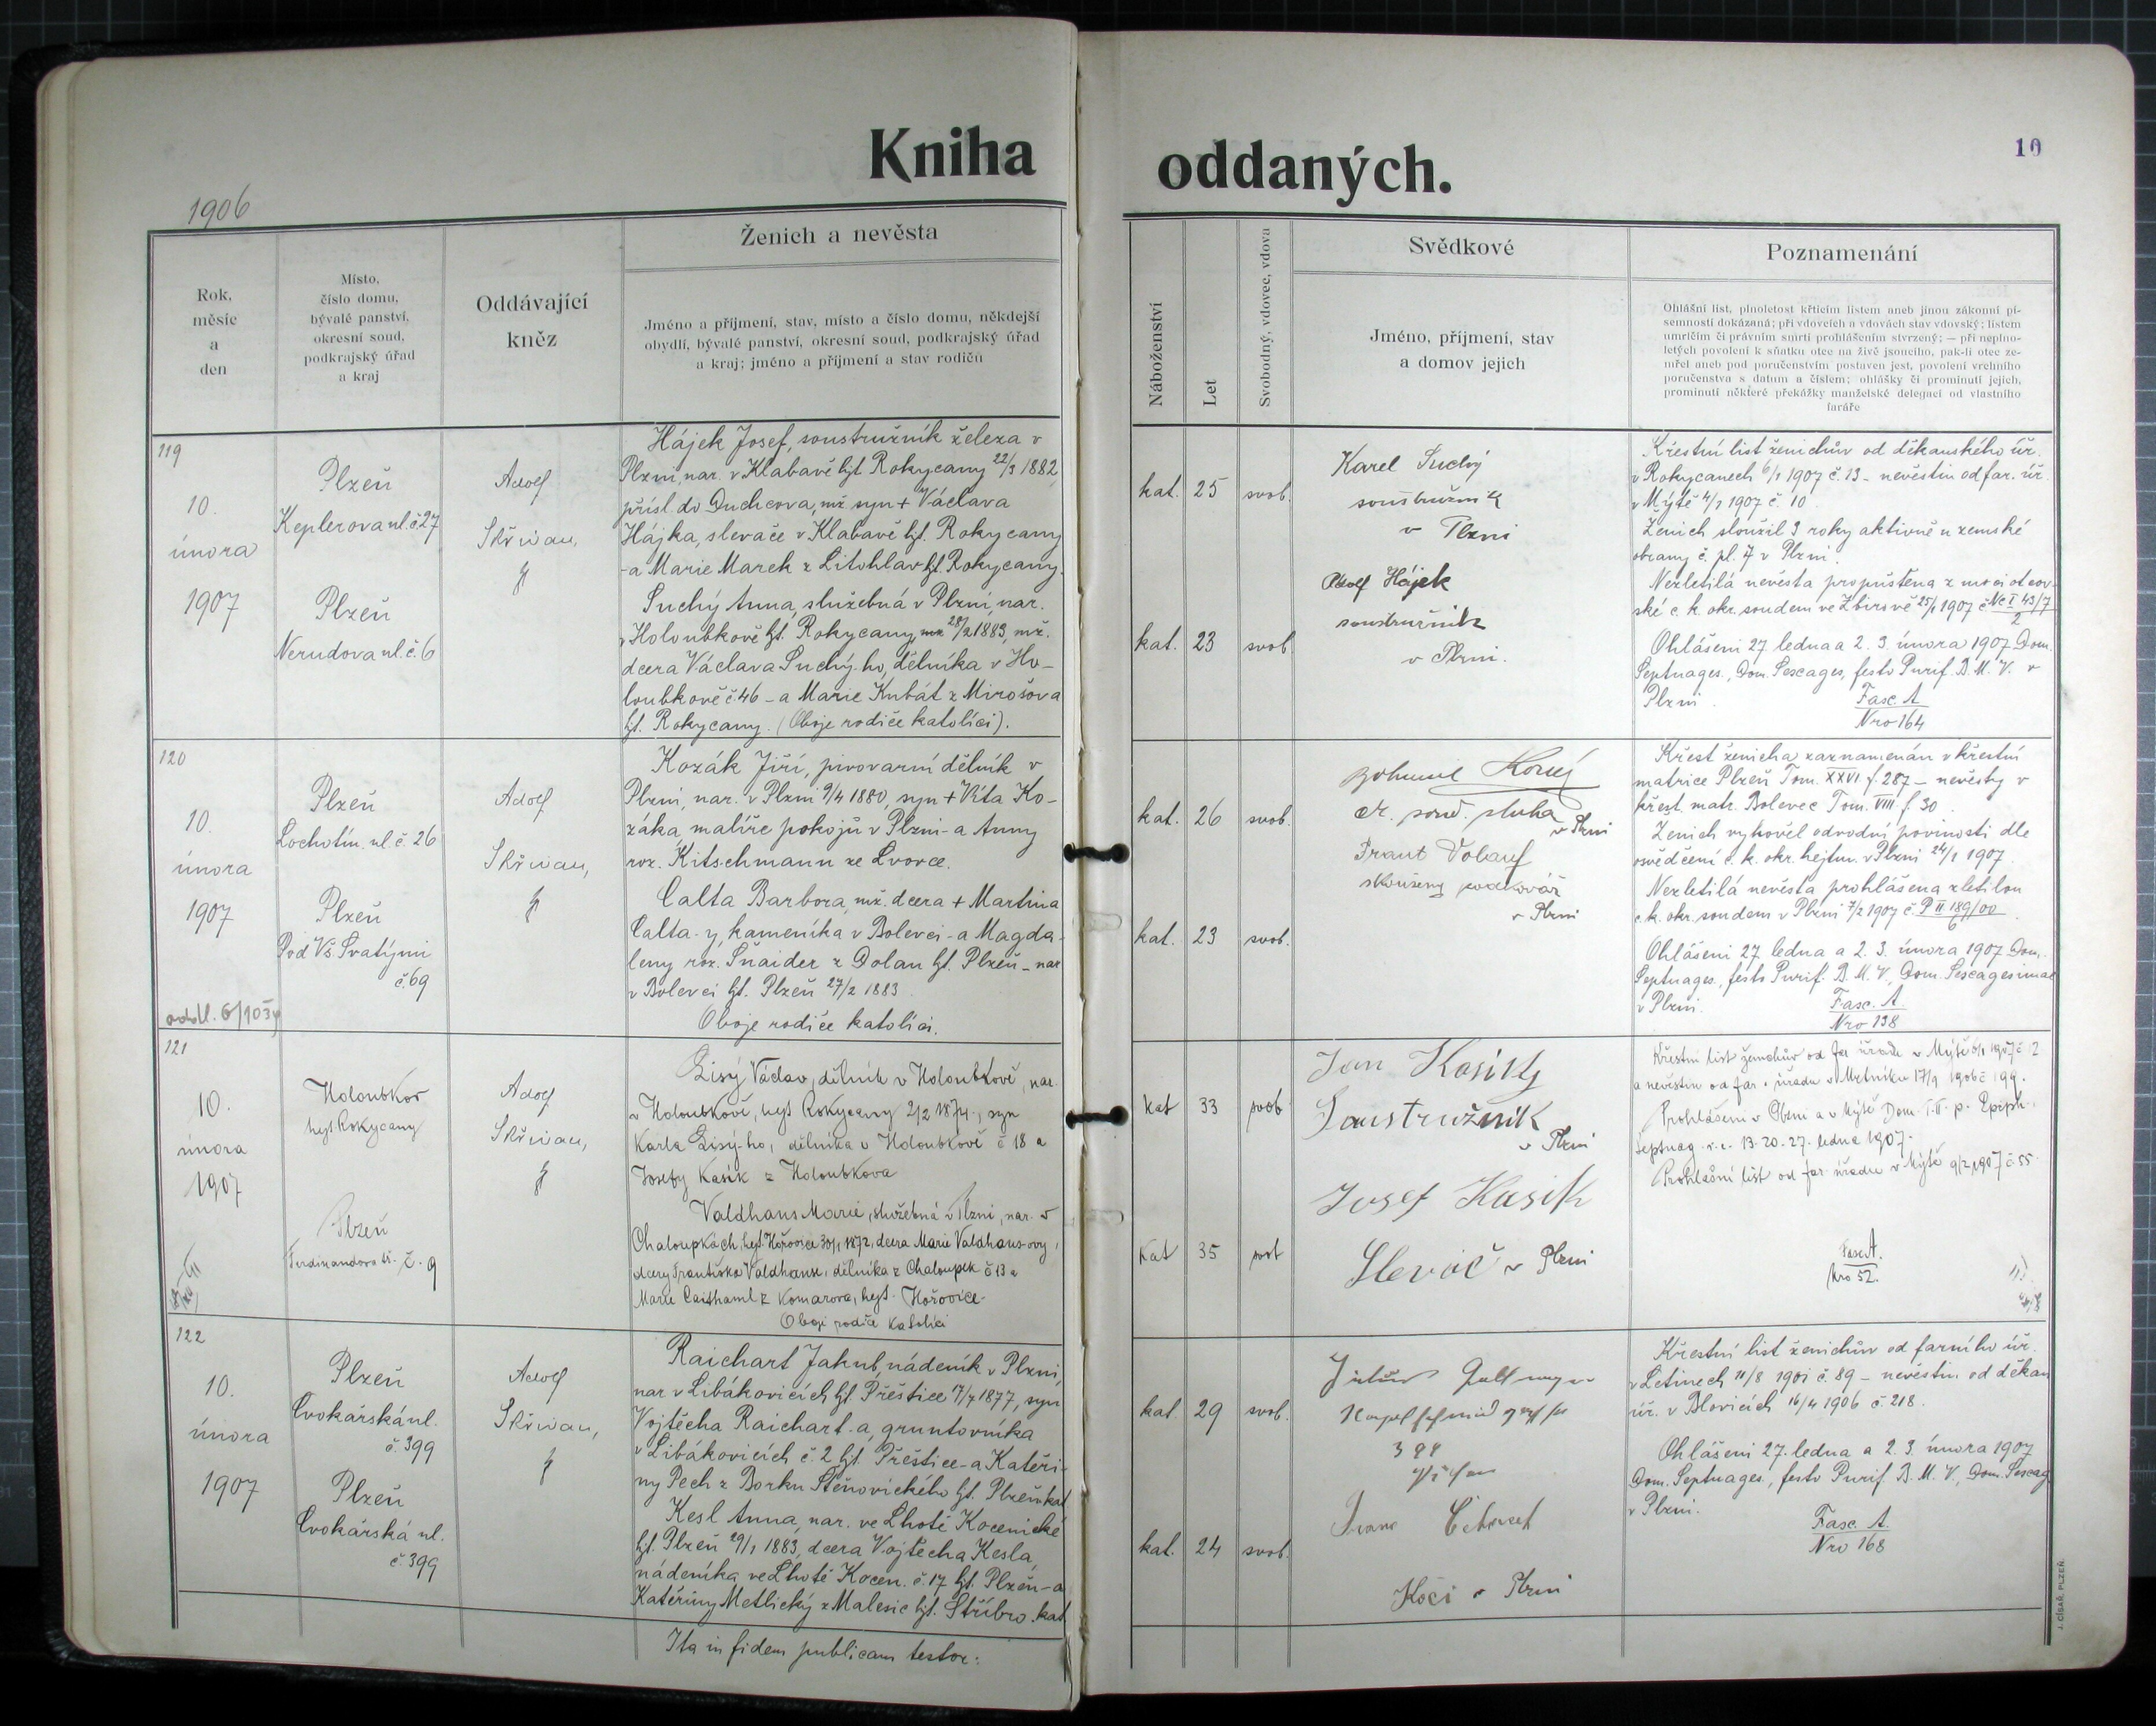 Kniha
oddaných.
10
1906
Rok,
měsíc
a
den
Místo,
číslo domu,
bývalé panství,
okresní soud,
podkrajský úřad
a kraj
Oddávající
kněz
Ženich a nevěsta
Jméno a příjmení, stav, místo a číslo domu, někdejší
obydlí, bývalé panství, okresní soud, podkrajský úřad
a kraj; jméno a příjmení a stav rodičů
Náboženství
Let
Svobodný, vdovec, vdova
Svědkové
Jméno, příjmení, stav
a domov jejich
Poznamenání
Ohlášní list, plnoletost křticím listem aneb jinou zákonní pí-
semností dokázaná; při vdovcích a vdovách stav vdovský; listem
umrlčím či právním smrti prohlášením stvrzený; — při neplno-
letých povolení k sňatku otce na živě jsoucího, pak-li otec ze-
mřel aneb pod poručenstvím postaven jest, povolení vrchního
poručenstva s datum a číslem; ohlášky či prominutí jejich,
prominutí některé překážky manželské delegací od vlastního
faráře
119
10.
února
1907
Plzeň
Keplerova ul. č. 27
Plzeň
Nerudova ul. č. 6
Adolf
Skřivan,
Hájek Josef, soustružník železa v
Plzni, nar. v Klabavě hjt. Rokycany 22/3 1882,
přísl. do Duchcova, mž. syn + Václava
Hájka, slevače v Klabavě hjt. Rokycany
-a Marie Marek z Litohlav hjt. Rokycany.
Suchý Anna, služebná v Plzni, nar.
v Holoubkově hjt. Rokycany 28/2 1883, mž.
dcera Václava Suchý-ho, dělníka v Ho-
loubkově č. 46 - a Marie Kubát z Mirošova
hjt. Rokycany. (Oboje rodiče katolíci).
kat. 25 svob.
kat. 23 svob.
Karel Suchý
soustružník
v Plzni
Adolf Hájek
soustružník
v Plzni.
Křestní list ženichův od děkanského úř.
v Rokycanech 6/1 1907 č. 13 - nevěstin od far. úř.
v Mýtě 4/1 1907 č. 10
Ženich sloužil 3 roky aktivně u zemské
obrany č. pl. 7 v Plzni.
Nezletilá nevěsta propuštěna z moci otcov-
ské c. k. okr. soudem ve Zbirově 25/1 1907 č. Nc I 43/7
2
Ohlášeni 27 ledna a 2. 3. února 1907 Dom.
Septuages., Dom. Sexages, festo Purif. B. M. V. v
Plzni.
Fasc. A
Nro 164
120
10.
února
1907
Plzeň
Lochotín. ul. č. 26
Plzeň
Pod Vš. Svatými
č. 69
Adolf
Skřivan,
Kozák Jiří, pivovarní dělník v
Plzni, nar. v Plzni 9/4 1880, syn + Víta Ko-
záka, malíře pokojů v Plzni - a Anny
roz. Kitschmann ze Lvovce.
Calta Barbora, mž. dcera + Martina
Calta-y, kameníka v Bolevci - a Magda-
leny roz. Šnaider z Dolan hjt. Plzeň - nar
v Bolevci hjt. Plzeň 27/2 1883
Oboje rodiče katolíci.
kat. 26 svob.
kat. 23 svob.
Bohumil
v Plzni
v Plzni
Křest ženicha zaznamenán v křestní
matrice Plzeň Tom. XXVI f. 287 - nevěsty v
křest. matr. Bolevec Tom. VIII f. 30.
Ženich vyhověl odvodní povinosti dle
osvědčení c. k. okr. hejtm. v Plzni 24/1 1907.
Nezletilá nevěsta prohlášena zletilou
c. k. okr. soudem v Plzni 7/2 1907 č. P II 189/00
6
Ohlášeni 27 ledna a 2. 3. února 1907 Dom.
Septuages., festo Purif. B. M. V., Dom. Sexagesimae
v Plzni.
Fasc. A.
Nro 138
121
10.
února
1907
Holoubkov
hejt. Rokycany
Plzeň
Ferdinandova tř. č. 9
Adolf
Skřivan,
Lisý Václav, dělník v Holoubkově, nar.
v Holoubkově, hejt Rokycany 2/2 1874, syn
Karla Lisý-ho, dělníka v Holoubkově č 18 a
Josefy Kasík z Holoubkova
Valdhans Marie, služebná v Plzni, nar. v
Chaloupkách, hejt. Hořovice 30/1 1872, dcera Marie Valdhans-ovy,
dcery Františka Valdhanse, dělníka z Chaloupek č 13 a
Marie Caithaml z Komarova, hejt. Hořovice-
Oboji rodiče katolíci
kat 33 svob
kat 35 svob
Jan Kasík
Soustružník
v Plzni
Josef Kasík
Slevač v Plzni
Křestní list ženichův od far úřadu v Mýtě
Fasc A.
Nro 52.
122
10.
února
1907
Plzeň
Cvokářská ul.
č. 399
Plzeň
Cvokářská ul.
č. 399
Adolf
Skřivan,
Raichart Jakub, nádeník v Plzni,
nar v Libákovicích hjt. Přeštice 17/7 1877, syn
Vojtěcha Raichart-a, gruntovníka
v Libákovicích č. 2 hjt. Přeštice - a Kateři-
ny Pech z Borku Štěnovického hjt. Plzeň kat
Kesl Anna, nar. ve Lhotě Kocenické
hjt. Plzeň 29/1 1883, dcera Vojtěcha Kesla,
nádeníka ve Lhotě Kocen. č. 17 hjt. Plzeň - a
Kateřiny Metlický z Malesic hjt. Stříbro. kat.
kat. 29 svob.
kat. 24 svob.
Kočí v Plzni
Křestní list ženichův od farního úř.
v Letinech 11/8 1901 č. 89 - nevěstin od děkan
úř. v Blovicích 16/4 1906 č. 218.
Ohlášeni 27. ledna a 2. 3. února 1907
Dom. Septuages., festo Purif. B. M. V., Dom. Sexag
v Plzni.
Fasc. A.
Nro 168
Ita in fidem publicam testor:
J. CÍSAŘ, PLZEŇ.